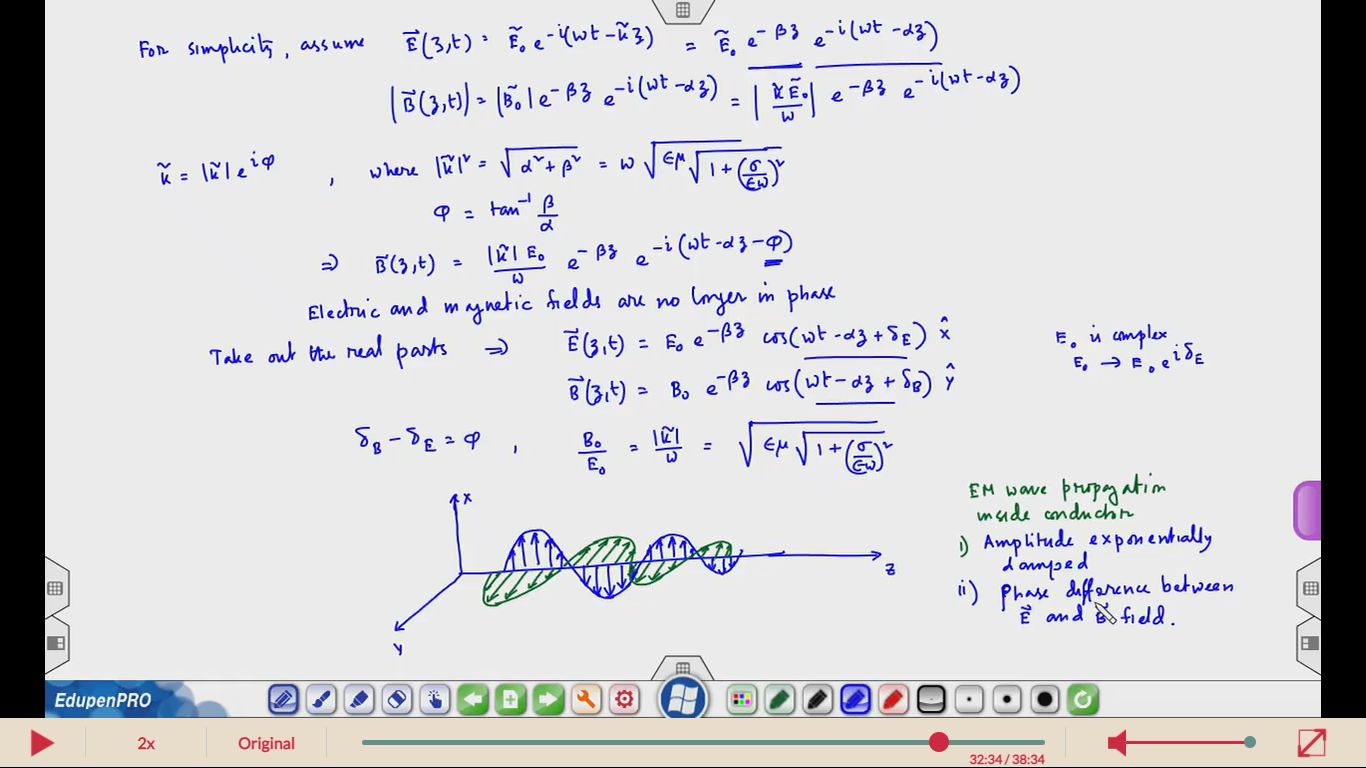 For simplicity, assume E⃗(z,t) = Ẽ₀ e^{-i(ωt-k̃z)} = Ẽ₀ e^{-βz} e^{-i(ωt-αz)}
|B⃗(z,t)| = |B̃₀| e^{-βz} e^{-i(ωt-αz)} = |k̃Ẽ₀/ω| e^{-βz} e^{-i(ωt-αz)}
k̃ = |k̃| e^{iφ} , where |k̃|² = √(α²+β²) = ω √(εμ √(1+(σ/εω)²))
φ = tan⁻¹ β/α
⇒ B̃(z,t) = |k̃| E₀/ω e^{-βz} e^{-i(ωt-αz-φ)}
Electric and magnetic fields are no longer in phase
Take out the real parts ⇒ E⃗(z,t) = E₀ e^{-βz} cos(ωt-αz+δ_E) x̂
E₀ is complex
E₀ → E₀ e^{iδ_E}
B⃗(z,t) = B₀ e^{-βz} cos(ωt-αz+δ_B) ŷ
δ_B - δ_E = φ , B₀/E₀ = |k̃|/ω = √(εμ √(1+(σ/εω)²))
x
z
y
EM wave propagation
inside conductor
i) Amplitude exponentially
damped
ii) Phase difference between
E⃗ and B⃗ field.
EdupenPRO
2x
Original
32:34 / 38:34